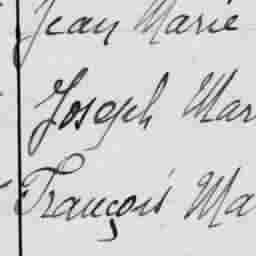 Jean Marie
Joseph Mar
François Ma